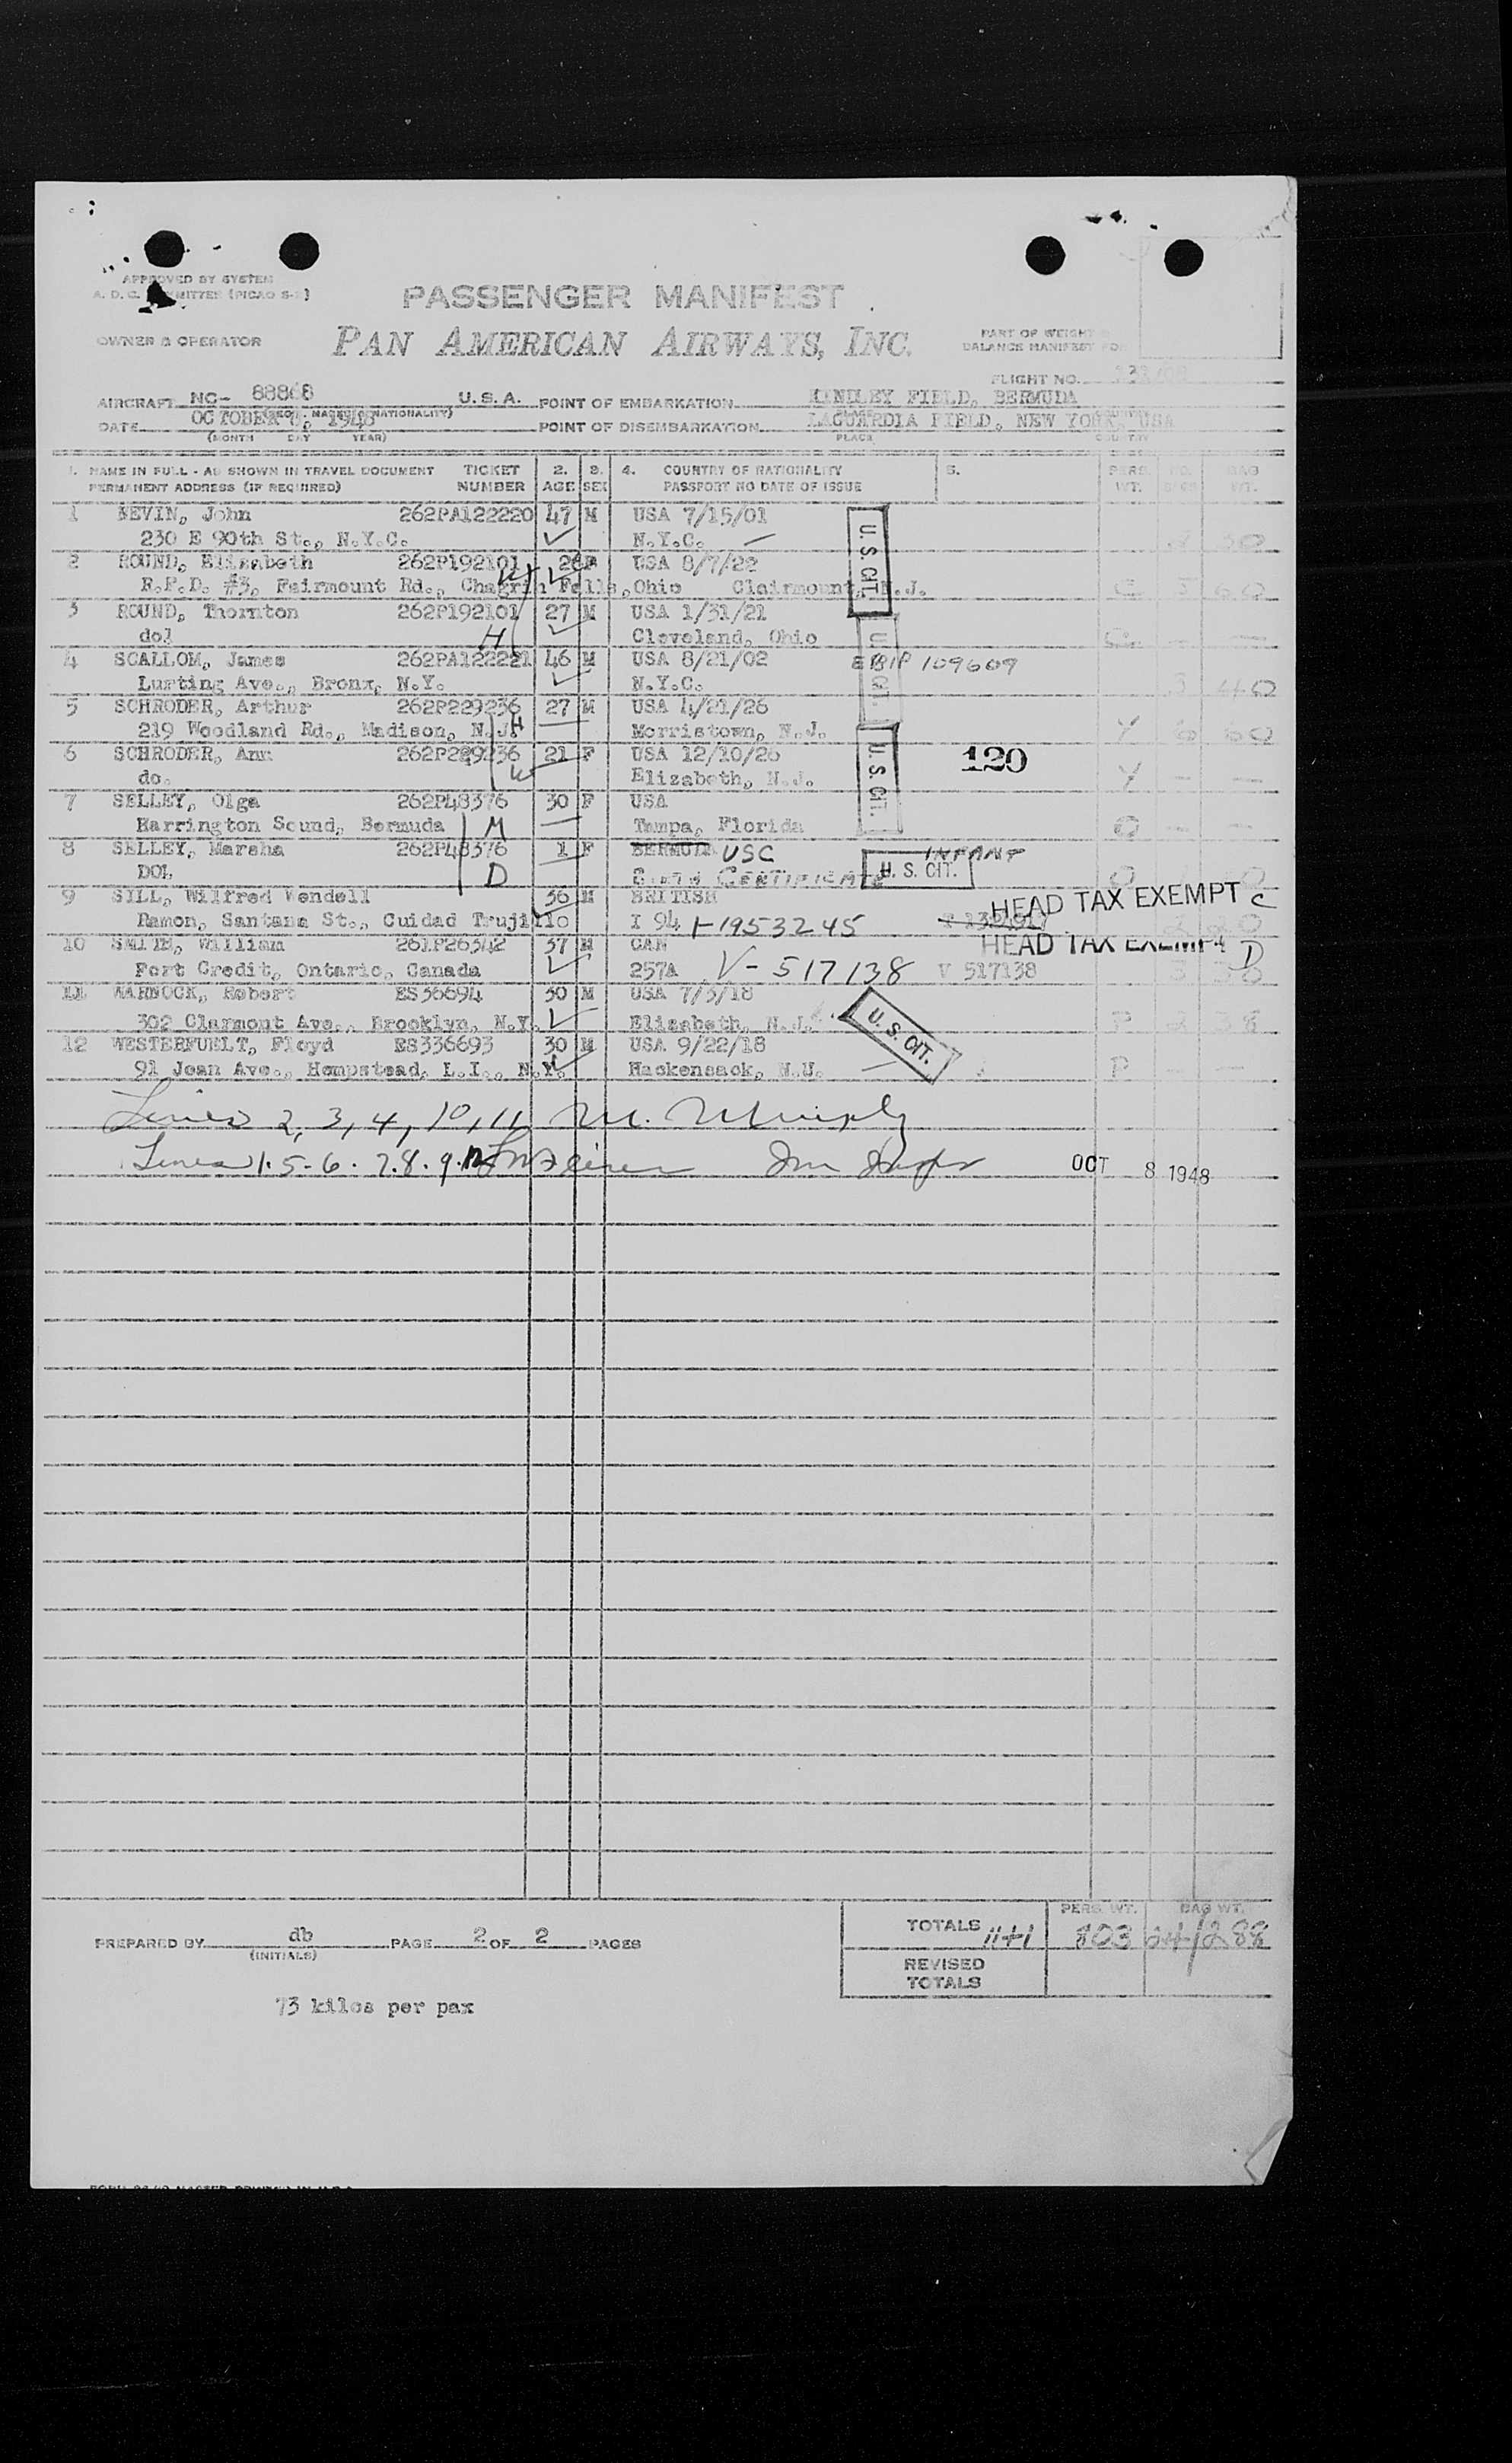 APPROVED BY SYSTEM
PASSENGER MANIFEST
OWNER & OPERATOR
PAN AMERICAN AIRWAYS, INC.
PART OF WEIGHT &
BALANCE MANIFEST FOR
FLIGHT NO.
AIRCRAFT NC- 88868 U.S.A. POINT OF EMBARKATION KINDLEY FIELD, BERMUDA
DATE OCTOBER 8, 1948 POINT OF DISEMBARKATION LAGUARDIA FIELD, NEW YORK, USA
(MONTH DAY YEAR) PLACE COUNTRY
1. NAME IN FULL - AS SHOWN IN TRAVEL DOCUMENT TICKET 2. 3. 4. COUNTRY OF NATIONALITY 5. PERS. NO. BAG
PERMANENT ADDRESS (IF REQUIRED) NUMBER AGE SEX PASSPORT NO DATE OF ISSUE WT. BAGS WT.
1 NEVIN, John 262PA122220 47 M USA 7/15/01
230 E 90th St., N.Y.C. N.Y.C.
U.S. CIT.
2 ROUND, Elizabeth 262P192101 26 F USA 8/7/22
R.F.D. #3, Fairmount Rd., Chagrin Falls, Ohio Clairmount, N.J.
3 ROUND, Thornton 262P192101 27 M USA 1/31/21
do] H Cleveland, Ohio
U.S. CIT.
4 SCALLOM, James 262PA122221 46 M USA 8/21/02 109609
Lurting Ave., Bronx, N.Y. N.Y.C. 3 40
5 SCHRODER, Arthur 262P229236 27 M USA 4/21/26
219 Woodland Rd., Madison, N.J. H Morristown, N.J. Y 6 60
U.S. CIT.
6 SCHRODER, Ann 262P229236 21 F USA 12/10/26 120
do. W Elizabeth, N.J. Y - -
7 SELLEY, Olga 262P48376 30 F USA
Harrington Sound, Bermuda M Tampa, Florida O - -
8 SELLEY, Marsha 262P48376 1 F BERMUDA USC INFANT
DOL D BIRTH CERTIFICATE U. S. CIT.
9 SILL, Wilfred Wendell 36 M BRITISH HEAD TAX EXEMPT C
Ramon, Santana St., Cuidad Trujillo I 94 I-1953245
10 SMITH, William 261P26342 37 M CAN HEAD TAX EXEMPT D
Port Credit, Ontario, Canada 257A V-517138 V 517138
11 WARNOCK, Robert ES36694 30 M USA 7/3/18
302 Clarmont Ave., Brooklyn, N.Y. Elizabeth, N.J. P 2 38
U. S. CIT.
12 WESTERFUELT, Floyd ES336693 30 M USA 9/22/18
91 Jean Ave., Hempstead, L.I., N.Y. Hackensack, N.J. P - -
Lines 2, 3, 4, 10, 11 M. Murphy
Lines 1.5-6.7.8.9.12
OCT 8 1948
PERS. WT. BAG WT.
TOTALS 11+1 803 24/288
PREPARED BY db PAGE 2 OF 2 PAGES
(INITIALS)
REVISED
TOTALS
73 kilos per pax